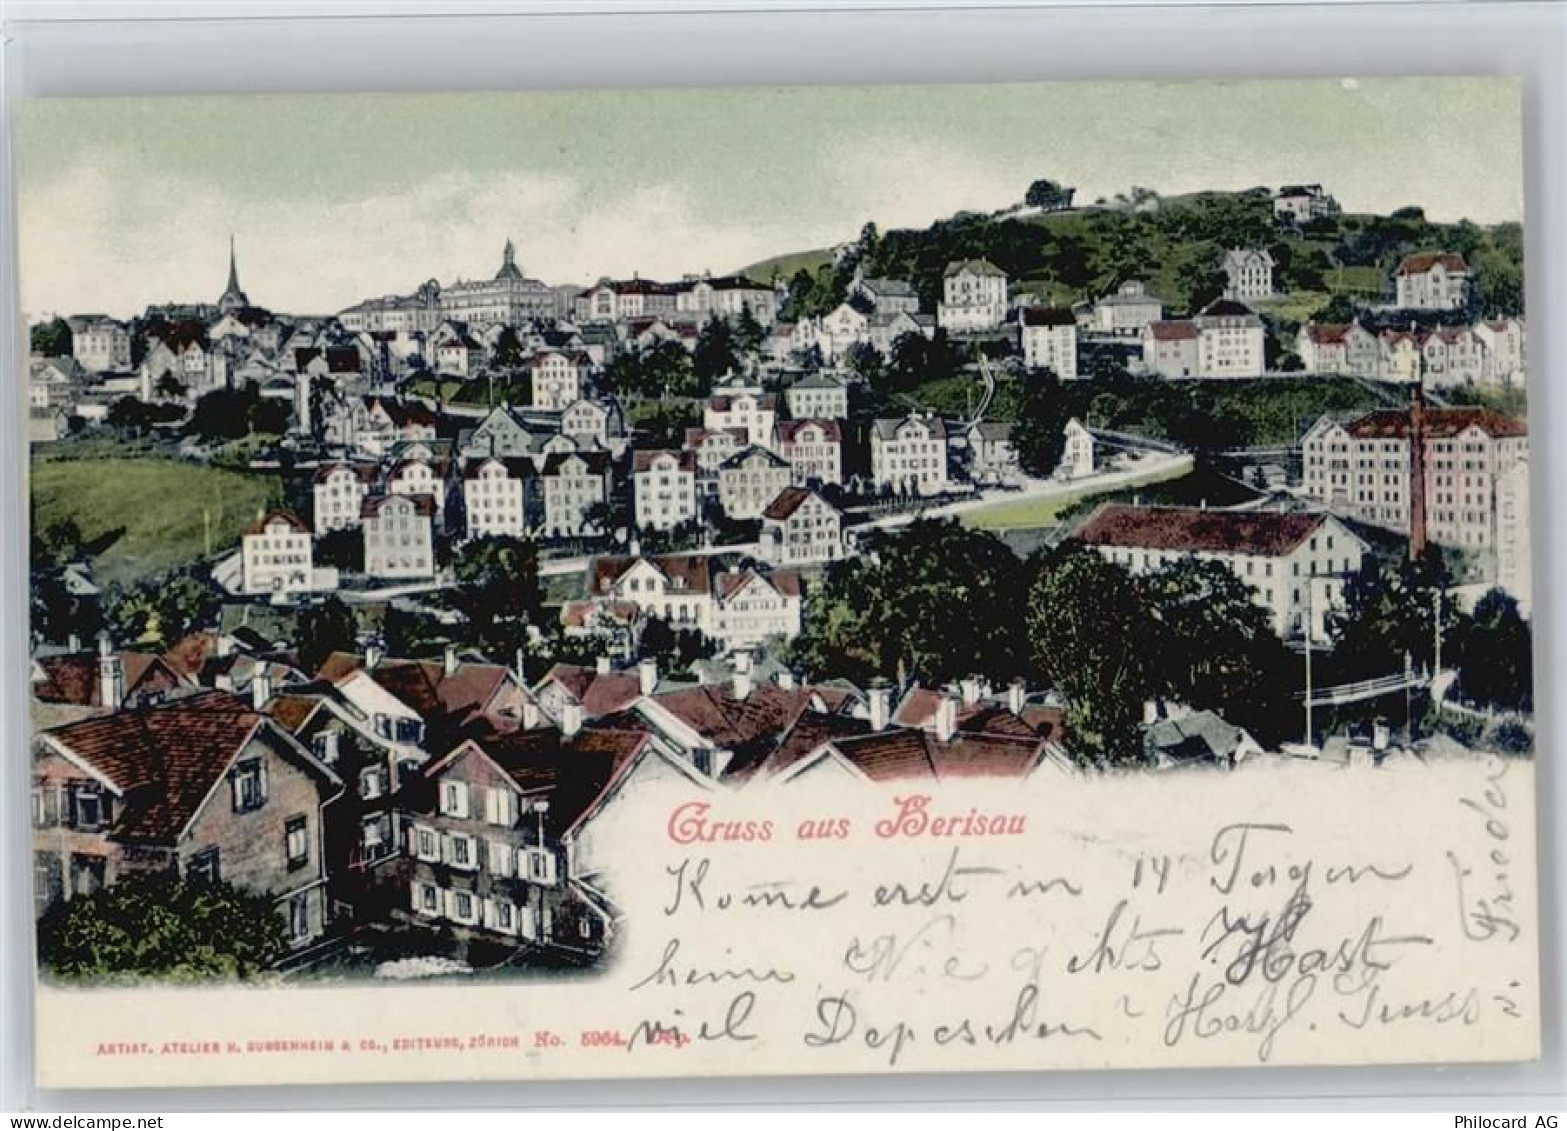 Gruss aus Herisau
Kome erst in 14 Tagen
heim. Wie gehts? Hast
viel Depeschen? Herzl. Gruss v.
Frieder
ARTIST. ATELIER H. GUGGENHEIM & CO., EDITEURS, ZÜRICH No. 5964. Dep.
www.delcampe.net
Philocard AG